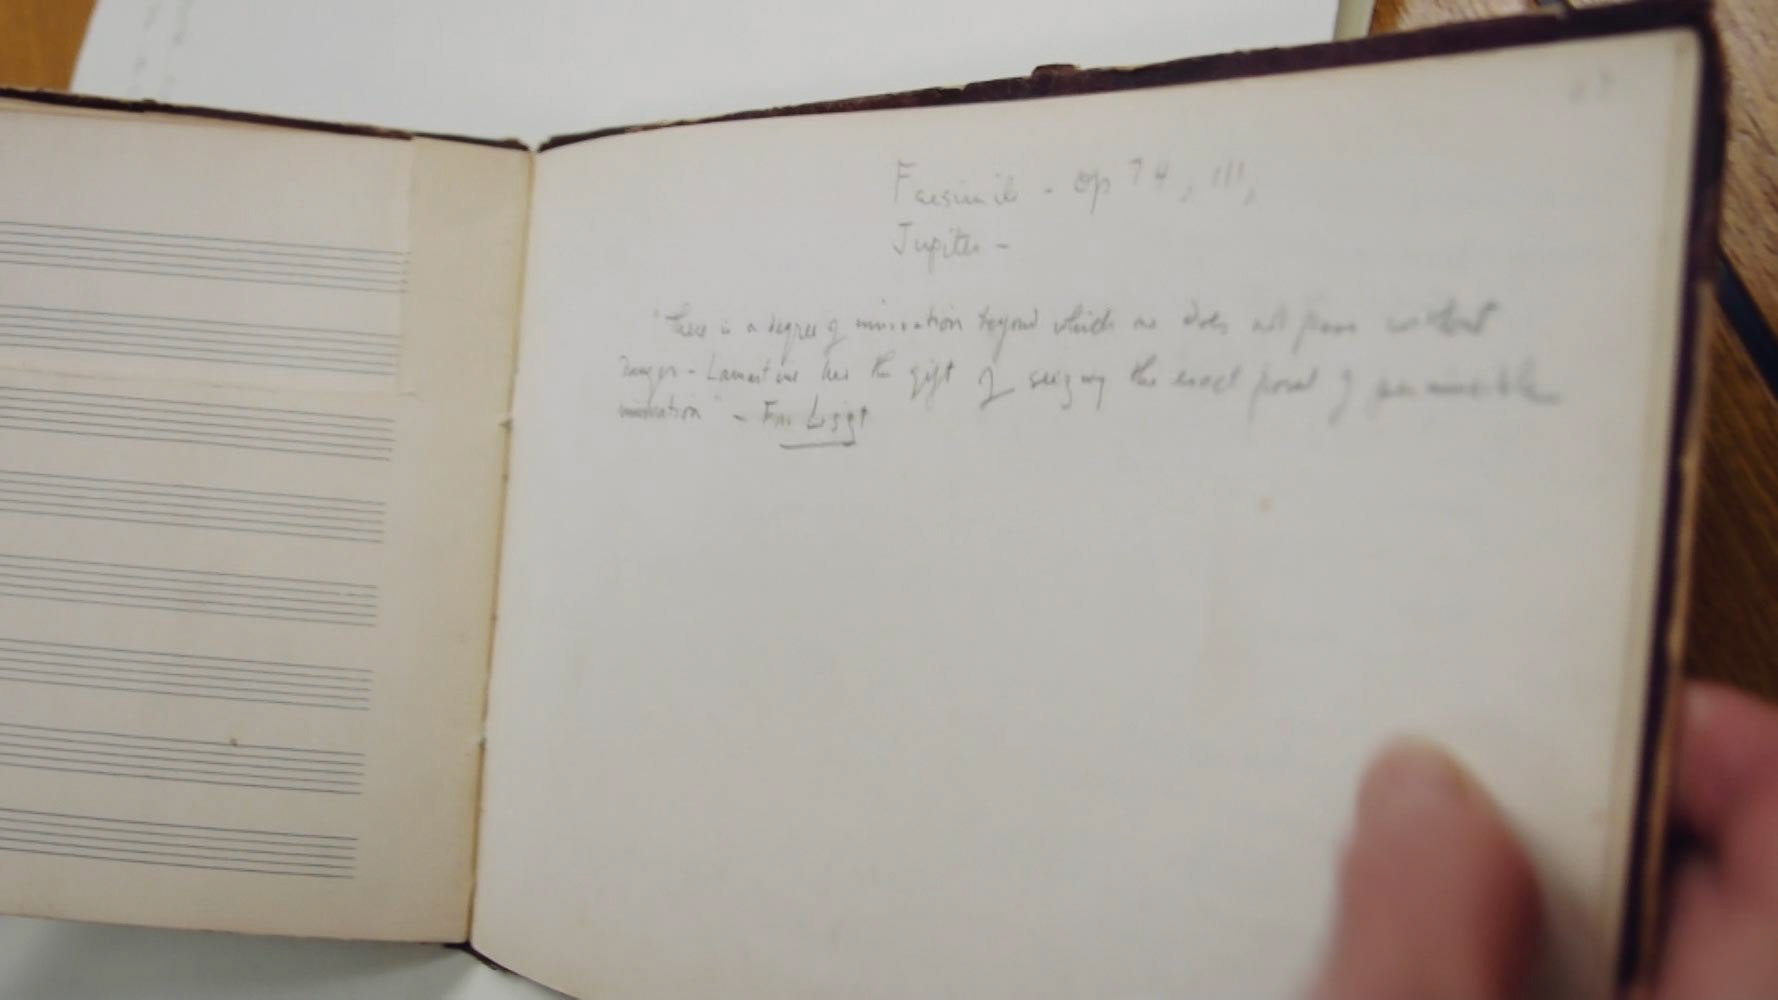 Facsimile - op 74, III,
Jupiter -
"There is a degree of innovation beyond which one does not pass without
danger - Lamartine has the gift of seizing the exact point of permissible
innovation" - Liszt